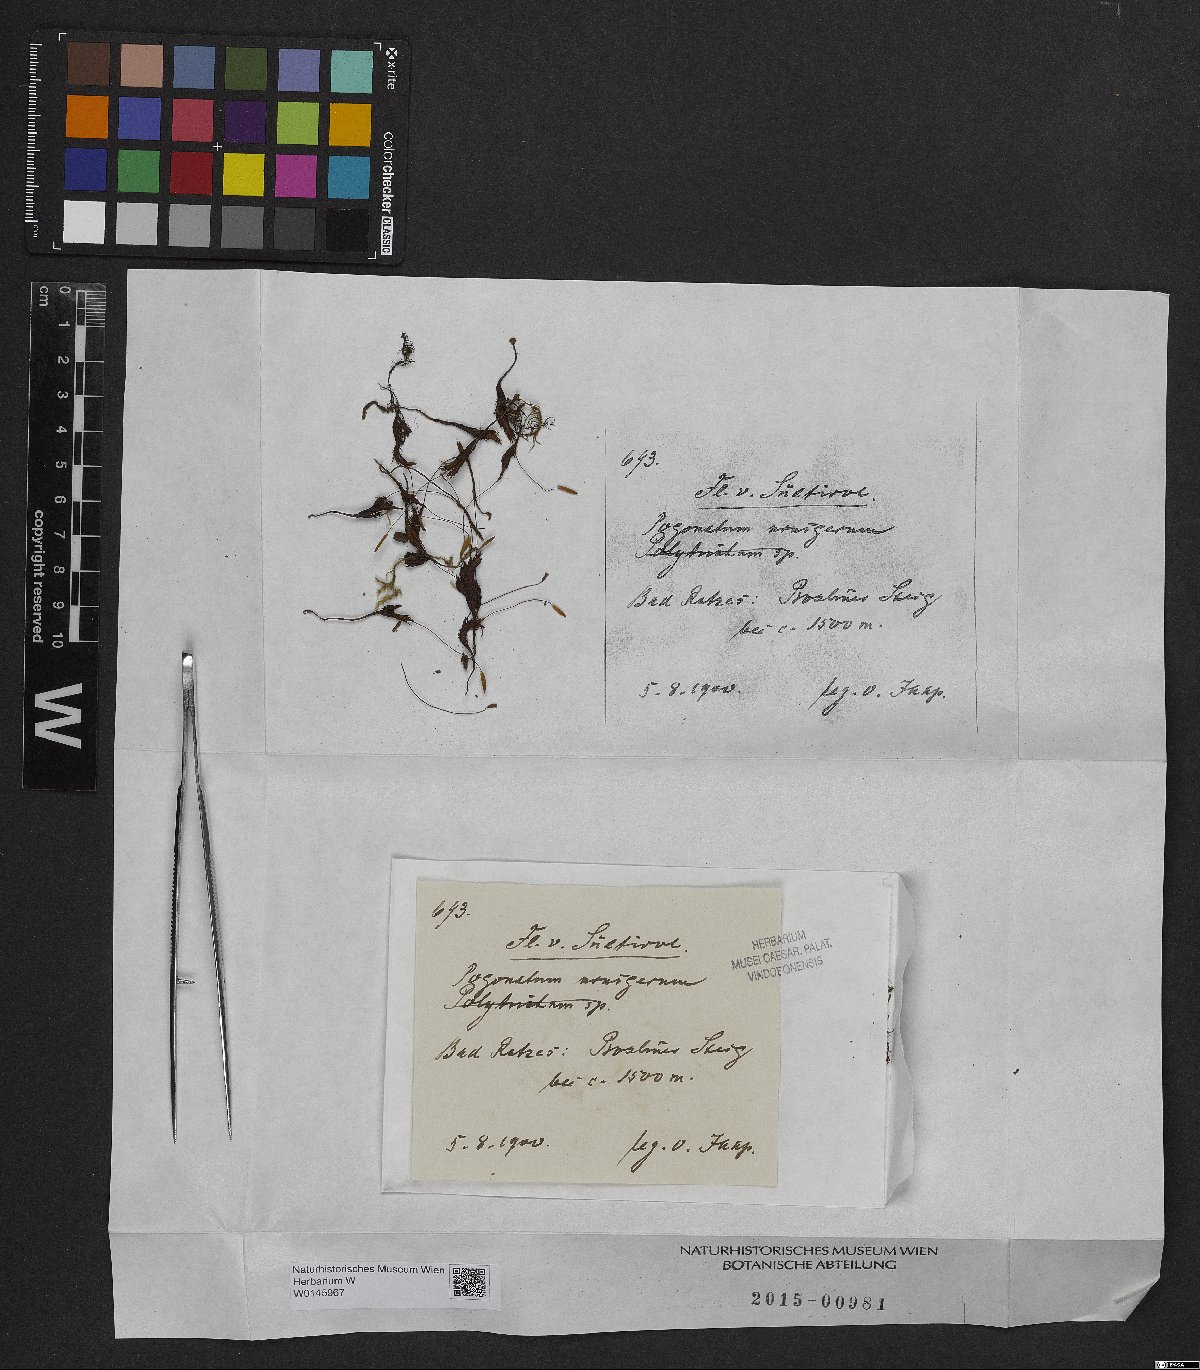 x-rite
colorchecker CLASSIC
cm
0 1 2 3 4 5 6 7 8 9 10
copyright reserved
W
693.
Fl. v. Südtirol.
Pogonatum urnigerum
Polytrichum sp.
Bad Ratzes: Proslines Steig
bei c. 1500 m.
5.8.1900. leg. O. Jaap.
693.
Fl. v. Südtirol.
Pogonatum urnigerum
Polytrichum sp.
Bad Ratzes: Proslines Steig
bei c. 1500 m.
5.8.1900. leg. O. Jaap.
HERBARIUM
MUSEI CAESAR. PALAT.
VINDOBONENSIS
Naturhistorisches Museum Wien
Herbarium W
W0145967
NATURHISTORISCHES MUSEUM WIEN
BOTANISCHE ABTEILUNG
2015-00981